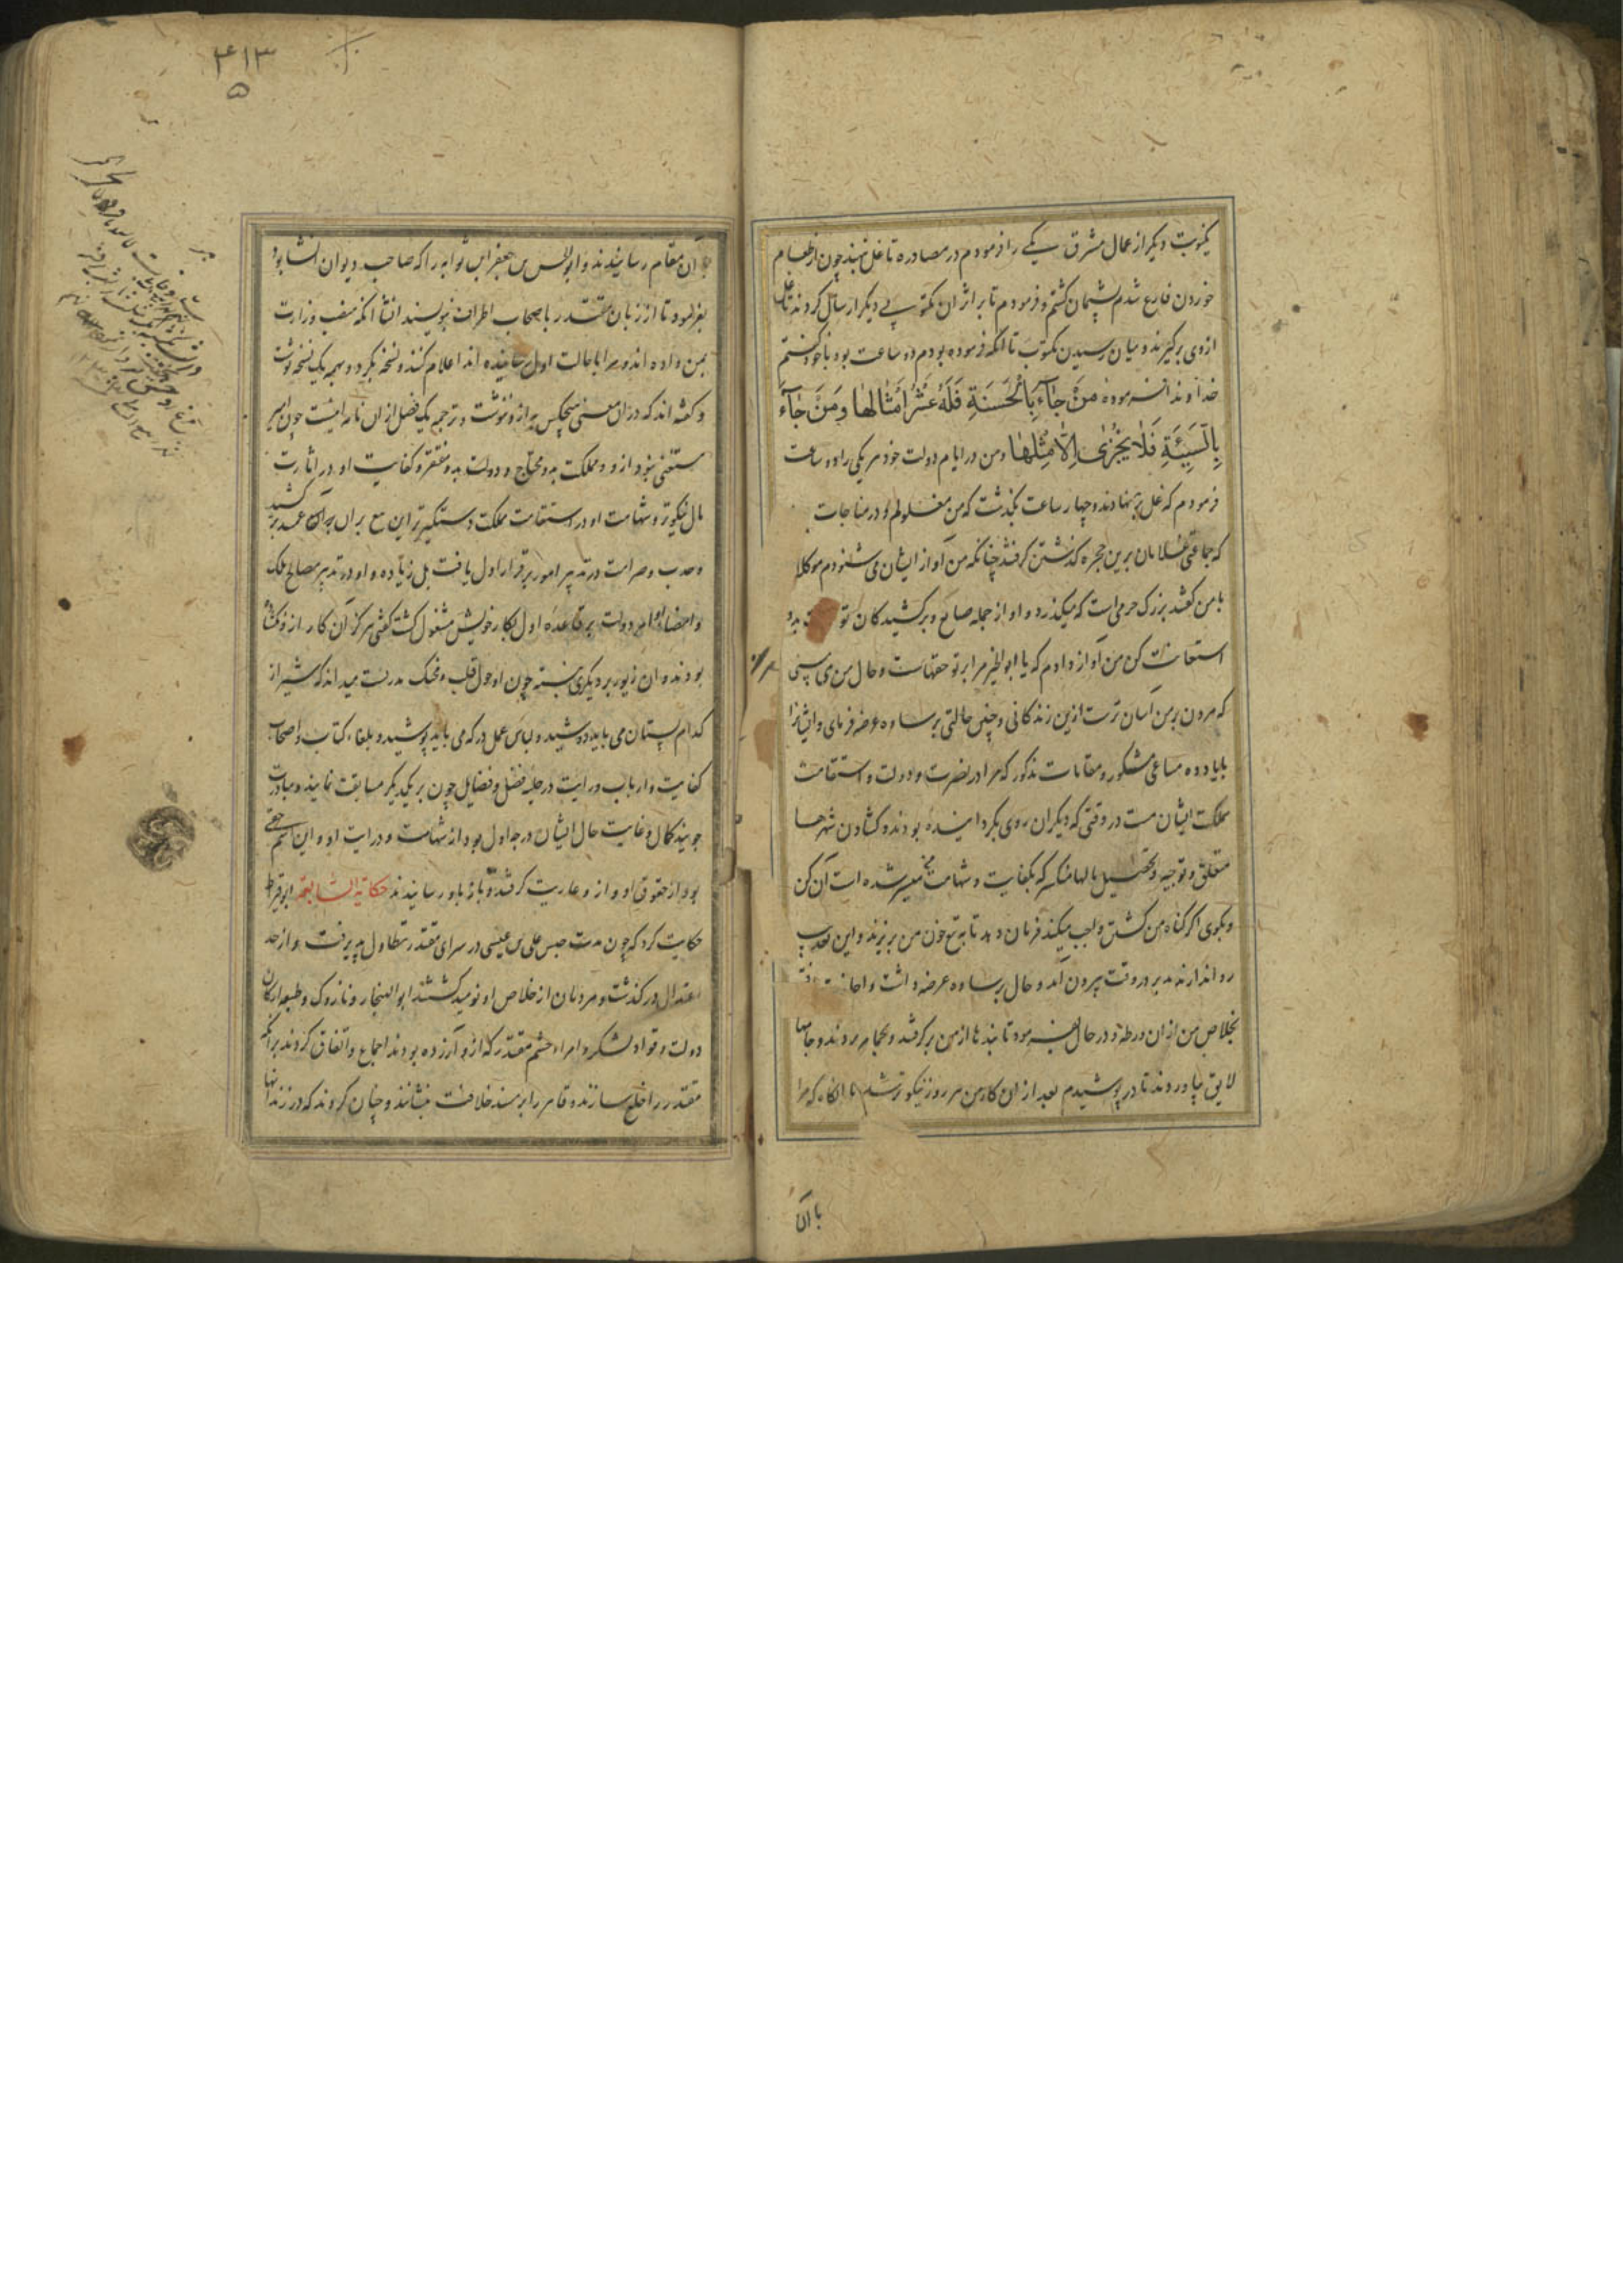 یکنوبت دیکر از عمال مشرق یکی را فرمودم در مصادره تا غل نهند چون از طعام
خوردن فارغ شدم پشیمان کشتم و فرمودم تا بر اثر ان مکتوبی دیکر ارسال کردند تا غل
ازوی برکیرند و میان رسیدن مکتوب تا انکه فرموده بودم دو ساعت بود با خود کفتم
خداوند فرموده مَنْ جَآءَ بِالْحَسَنَةِ فَلَهُ عَشْرُ اَمْثَالِهَا وَمَنْ جَآءَ
بِالسَّيِّئَةِ فَلَا يُجْزٰى اِلَّا مِثْلَهَا ومن در ایام دولت خود مر یکی را دو ساعت
فرمودم که غل بنهادند و چهار ساعت بکذشت که من مغلولم و در مناجات
که جماعتی غلامان برین حجره کذشتن کرفتند چنانکه من آواز ایشان می شنودم موکلان
با من کفتند بزرک حرمی است که میکذرد و او از جمله صنایع و برکشیدکان تو بدو
استغاثت کن من آواز دادم که یا ابوالخیر مرا بر تو حقهاست و حال من می بینی
که مردن بر من آسان ترست ازین زندکانی و چنین حالتی بر ساده عرضه فرمای و ایشانرا
بایاد ده مساعی مشکور و مقامات مذکور که مرا در نصرت و دولت و استقامت
مملکت ایشان هست در وقتی که دیکران روی بکردانیده بودند و کشادن شهرها
متعلق و توجیه و تحصیل مالها منکسر که بکفایت و شهامت من میسر شده است آن کن
و بکوی اکر کناه من کشتن واجب میکند فرمان دهد تا به تیغ خون من بریزند و این تعذیب
روا ندارند بدر در وقت بیرون آمد و حال بر ساده عرضه داشت و اجازت
بخلاص من از ان ورطه و در حال بفرمود تا بندها از من برکرفتند و بحمام بردند و جامها
لایق بیاوردند تا در پوشیدم بعد از ان کار من هر روز نیکوتر شد تا انکاه که مرا
با آن
۴۱۳
۵
با آن مقام رسانیدند و ابوالحسن بن جعفر ابن ثوابه را که صاحب دیوان انشا بود
بفرمود تا از زبان مقتدر باصحاب اطراف بنویسند انشا انکه منصب وزارت
بمن داده اند و مرا با حالت اول رسانیده اند اعلام کنند و نسخه بکرد و همه یک نسخه نوشت
و کفته اند که در ان معنی هیچکس به ازو ننوشت و ترجمه یک فصل از ان نامه اینست چون امیر
مستغنی نبود ازو و مملکت بدو محتاج و دولت بدو مفتقر و کفایت او در اثارت
مال نیکوتر و شهامت او در استقامت مملکت دستکیرتر این تیغ بران بران عمد برکشید
و حدب و صرامت در تدبیر امور برقرار اول یافت بل زیاده و او در تدبیر مصالح ملک
و امضاء اوامر دولت بر قاعده اول بکار خویش مشغول کشت کفتی هرکز آن کار ازو نکشاده
بودند و ان زیور بر دیکری نبسته چون او حول قلب و محنک مدربست میداند که شیر از
کدام پستان می باید دوشید و لباس عمل در که می باید پوشید و بلغاء کتاب و اصحاب
کفایت و ارباب درایت در حلبه فضل و فضایل چون بر یکدیکر مسابقت نمایند و مبادرت
جویند کمال و غایت حال ایشان درجه اول بود از شهامت و درایت او و این اسم حقی
بود از حقوق او و ازو عاریت کرفته و باز باو رسانیدند حکایة السابعة ابو قیراط
حکایت کرد که چون مدت حبس علی بن عیسی در سرای مقتدر تطاول پذیرفت و از حد
اعتدال در کذشت و مردمان از خلاص او نومید کشتند ابو الهیجا و نازوک و طبقه ارکان
دولت و قواد لشکر و امراء حشم مقتدر که ازو آزرده بودند اجماع و اتفاق کردند بر انکه
مقتدر را خلع سازند و قاهر را بر مسند خلافت بنشانند و چنان کردند که در زندانها